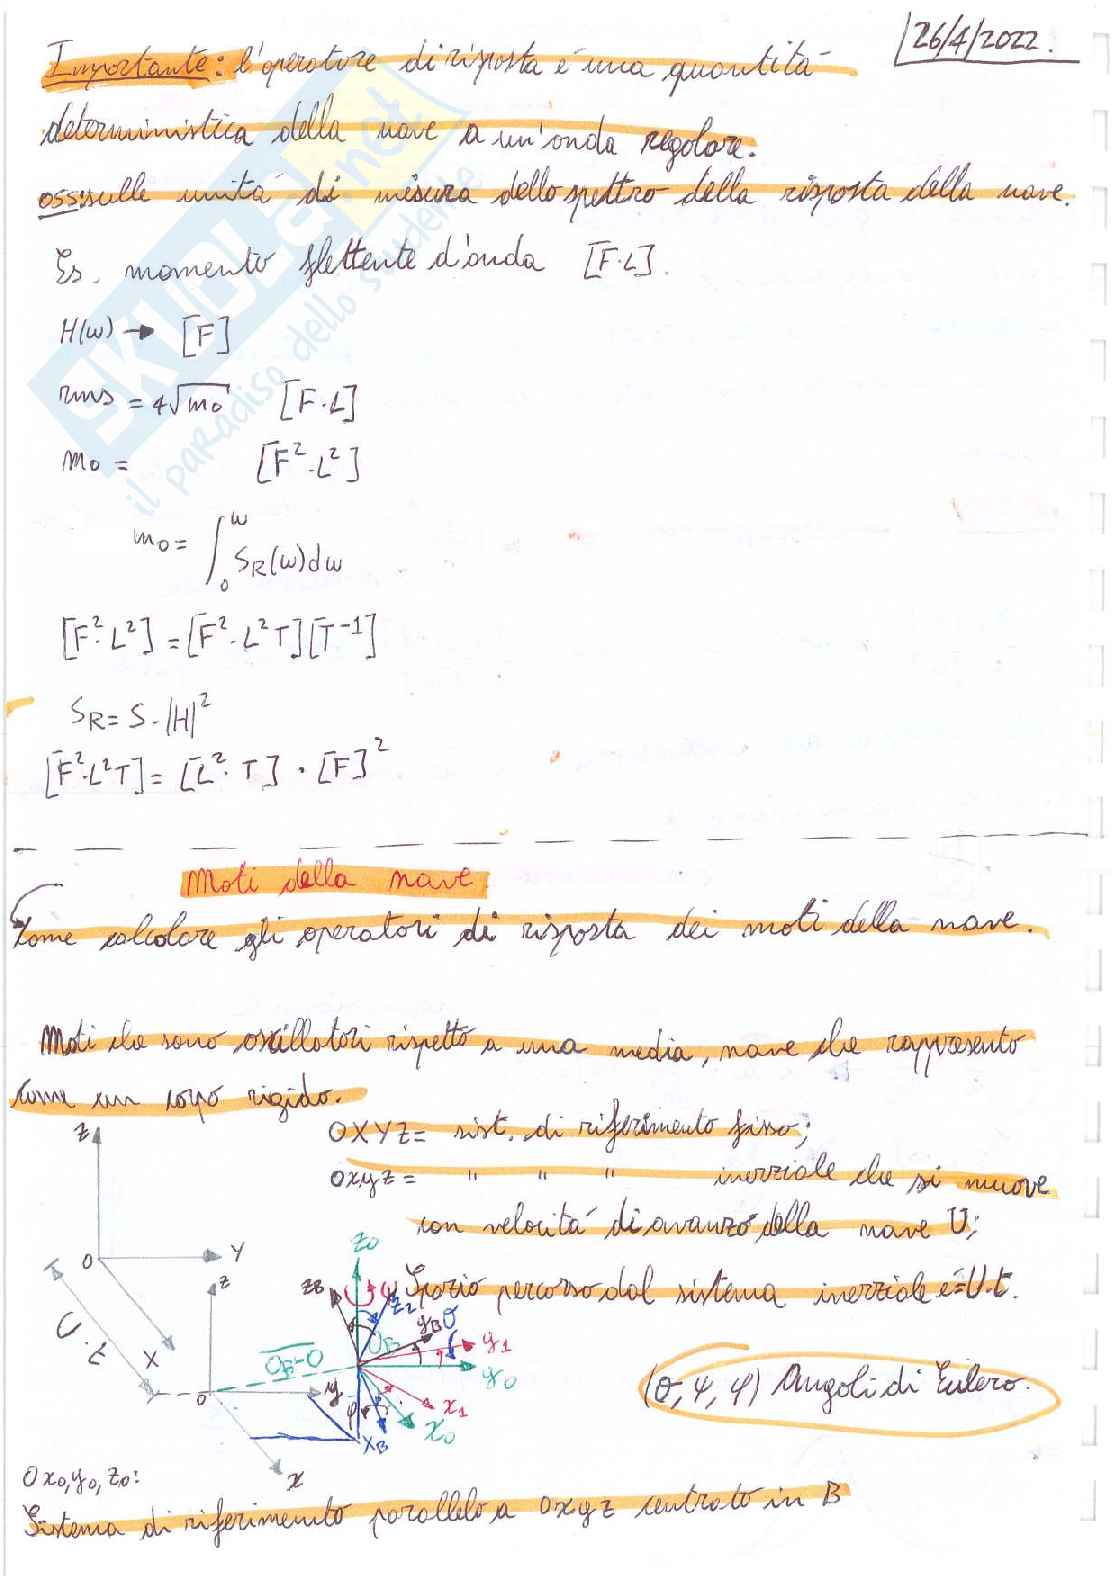 26/4/2022.
Importante: l'operatore di risposta è una quantità
deterministica della nave a un'onda regolare.
oss: sulle unità di misura dello spettro della risposta della nave.
Es. momento flettente d'onda [F·L].
H(ω) → [F]
rms = 4√m₀ [F·L]
m₀ = [F²·L²]
m₀ = ∫₀^ω S_R(ω)dω
[F²·L²] = [F²·L²T][T⁻¹]
S_R = S·|H|²
[F²·L²T] = [L²·T] · [F]²
Moti della nave
Come calcolare gli operatori di risposta dei moti della nave.
Moti che sono oscillatori rispetto a una media, nave che rappresento
come un corpo rigido.
OXYZ = sist. di riferimento fisso;
oxyz = " " " inerziale che si muove
con velocità di avanzo della nave U;
Spazio percorso dal sistema inerziale è = U·t.
(θ, ψ, φ) Angoli di Eulero.
Z
O
Y
X
U·t
z
o
y
x
O_B-O
O_B
z₀
z_B
ψ
z₂
y_B
θ
y₁
y₀
x₁
x₀
x_B
φ
Ox₀,y₀,z₀:
Sistema di riferimento parallelo a oxyz centrato in B
SKUOLA.net
il paradiso dello studente